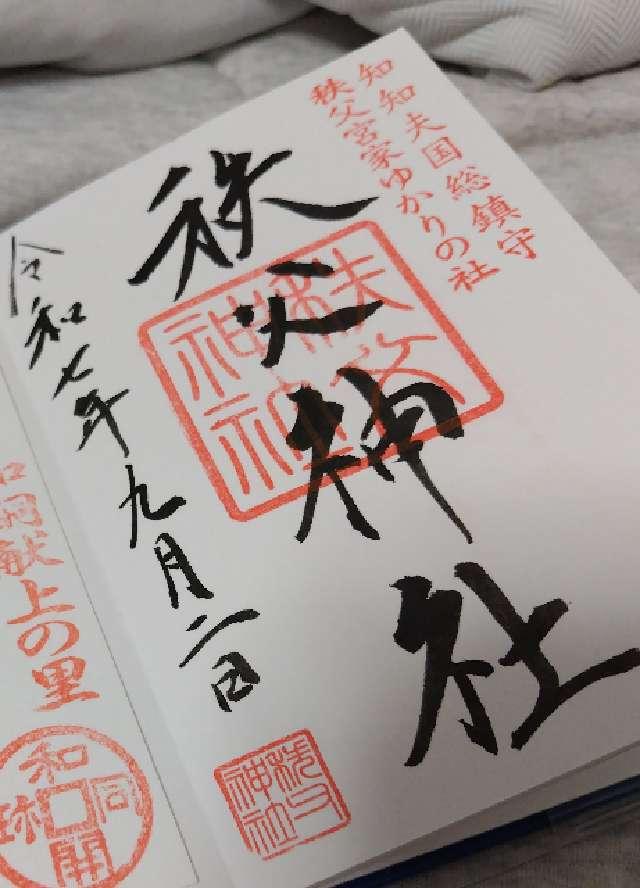 知知夫国総鎮守
秩父宮家ゆかりの社
秩父神社
令和七年九月二日
秩父
神社
秩父
神社
和銅献上の里
和同開珎